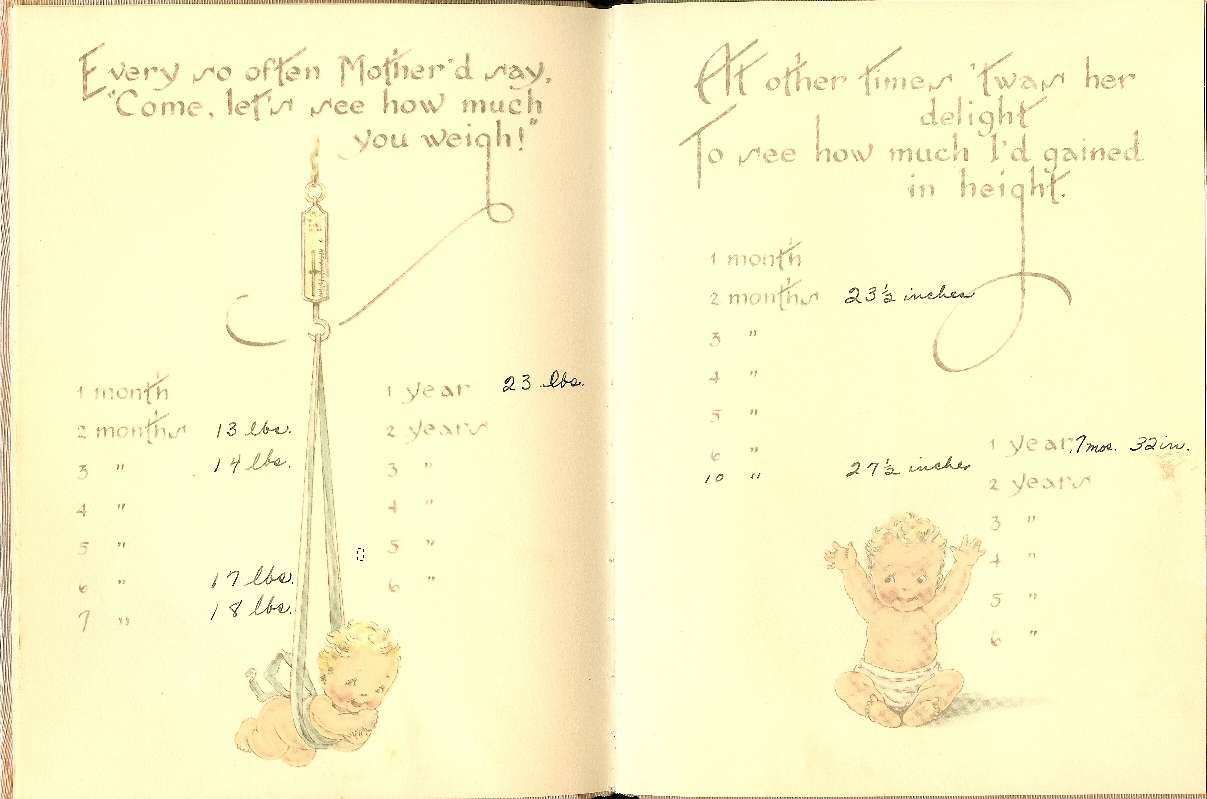 Every so often Mother'd say,
"Come, let's see how much
you weigh!"
1 month
2 months 13 lbs.
3 " 14 lbs.
4 "
5 "
6 " 17 lbs.
7 " 18 lbs.
1 year 23 lbs.
2 years
3 "
4 "
5 "
6 "
At other times 'twas her
delight
To see how much I'd gained
in height.
1 month
2 months 23½ inches
3 "
4 "
5 "
6 "
10 " 27½ inches
1 year, 7 mos. 32 in.
2 years
3 "
4 "
5 "
6 "